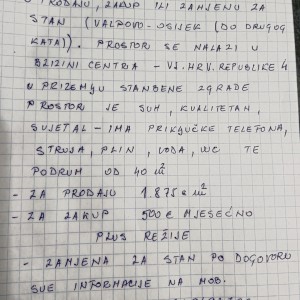 PRODAJU, ZAKUP ILI ZAMJENU ZA
STAN (VALPOVO-OSIJEK (DO DRUGOG
KATA)). PROSTOR SE NALAZI U
BLIZINI CENTRA - VIJ.HRV.REPUBLIKE 4
U PRIZEMJU STANBENE ZGRADE
PROSTOR JE SUH, KVALITETAN,
SVJETAL - IMA PRIKLJUČKE TELEFONA,
STRUJA, PLIN, VODA, WC TE
PODRUM OD 40 m²
- ZA PRODAJU 1.875 € m²
- ZA ZAKUP 500 € MJESEČNO
PLUS REŽIJE
- ZAMJENA ZA STAN PO DOGOVORU
SVE INFORMACIJE NA MOB.